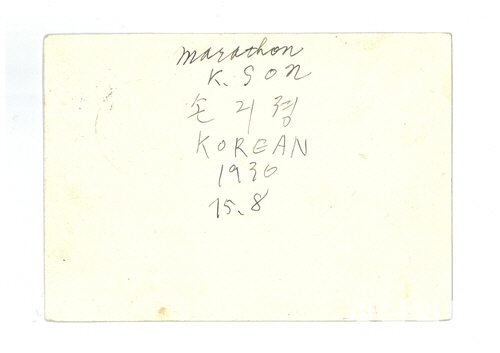 marathon
K. Son
손 긔 졍
KOREAN
1936
15.8